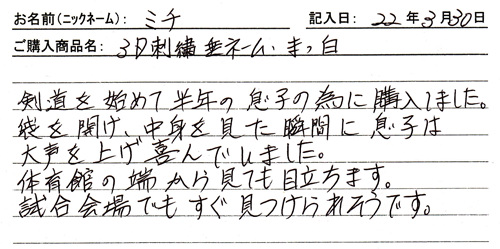 お名前(ニックネーム): ミチ 記入日: 22年3月30日
ご購入商品名: 3D刺繍垂ネーム・まっ白
剣道を始めて半年の息子の為に購入しました。
袋を開け、中身を見た瞬間に息子は
大声を上げ喜んでいました。
体育館の端から見ても目立ちます。
試合会場でもすぐ見つけられそうです。